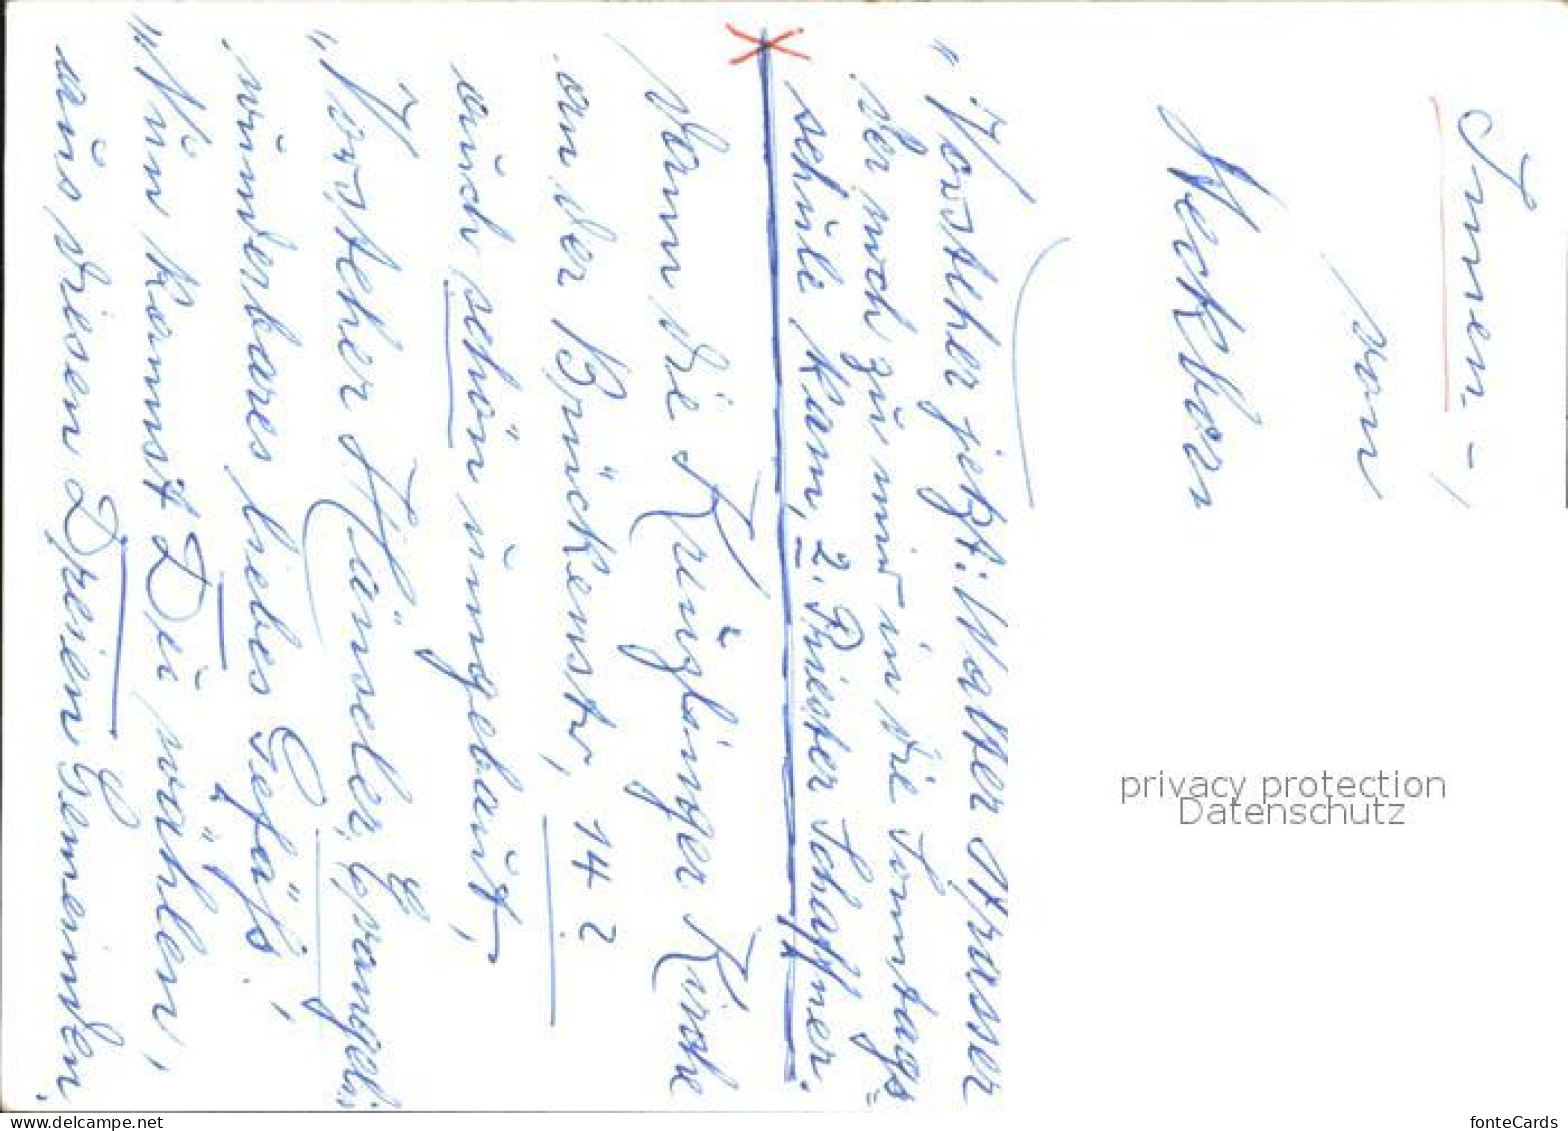 Innen-,
von
Heckbern
"Vorsteher jetzt: Walter Strasser
der noch zu mir in die Sonntags=
schule kam, 2. Priester Schaffner.
Dann die Knüglinger Kirche
an der Brückenstr, 14 ?
auch schön umgebaut,
"Vorsteher Häussler, Evangeli"
wunderbares liebes Gefäss!
"Nun kannst Du wählen,
aus diesen Dreien Gemeinden.
privacy protection
Datenschutz
fonteCards